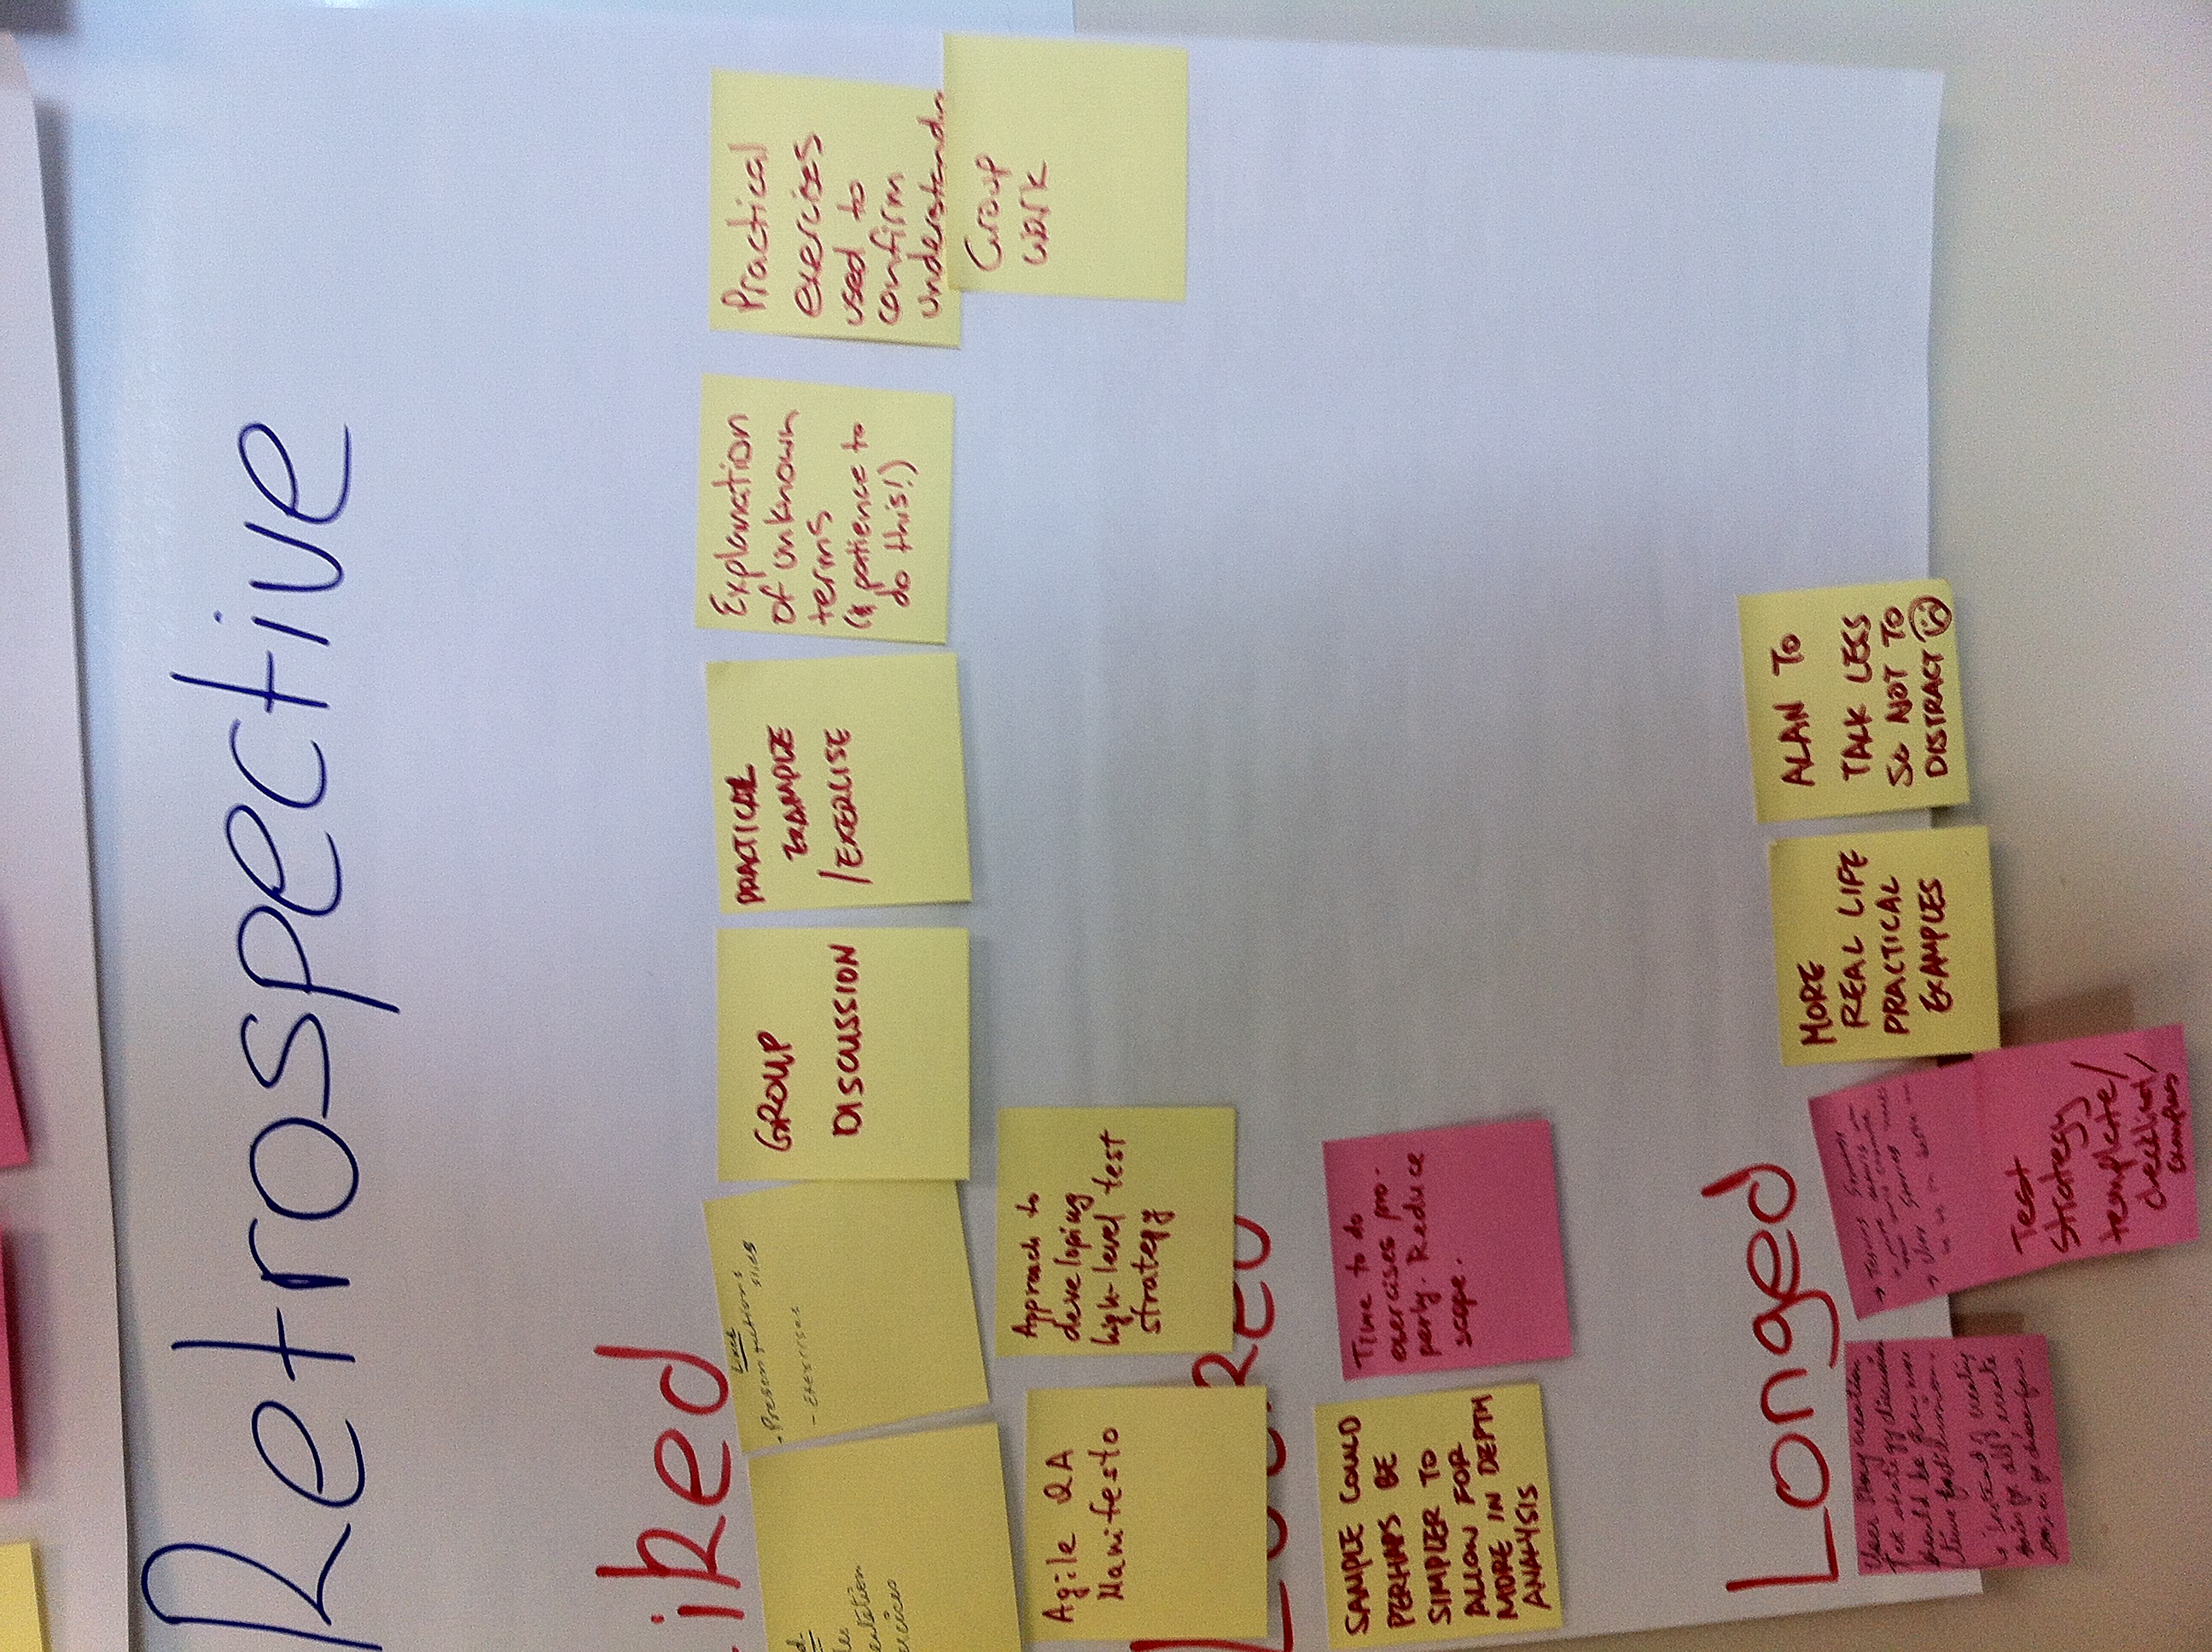 Retrospective
Liked
entation
Liked
- Presentations
slides
- Exercises
GROUP
DISCUSSION
PRACTICAL
EXAMPLE
/EXERCISE
Explanation
of unknown
terms
(& patience to
do this!)
Practical
exercises
used to
confirm
understandin
Group
work
Agile QA
Manifesto
Approach to
developing
high-level test
strategy
Lacked
SAMPLE COULD
PERHAPS BE
SIMPLER TO
ALLOW FOR
MORE IN DEPTH
ANALYSIS
Time to do
exercises pro-
perly. Reduce
scope.
Longed
User Story creation
Test strategy discussion
should be given more
time for discussion.
Instead of creating
for all create
→ Testing Strategy
more details
→ User Stories
Test
Strategy
template/
checklist/
Examples
MORE
REAL LIFE
PRACTICAL
EXAMPLES
ALAN TO
TALK LESS
SO NOT TO
DISTRACT